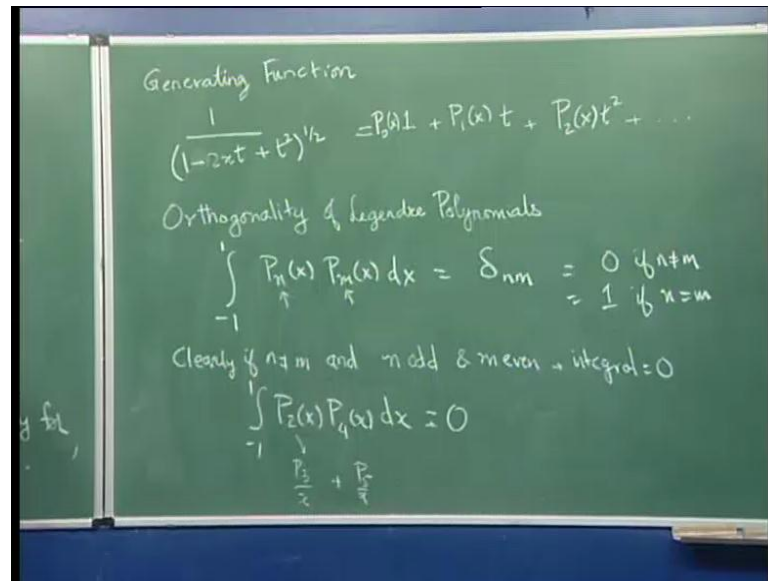 Generating Function
1/(1-2xt + t²)^1/2 = P₀(x)1 + P₁(x) t + P₂(x)t² + ...
Orthogonality of Legendre Polynomials
∫₋₁¹ Pₙ(x) Pₘ(x) dx = δₙₘ = 0 if n≠m
= 1 if n=m
Clearly if n≠m and n odd & m even → integral=0
∫₋₁¹ P₂(x) P₄(x) dx = 0
y for
,